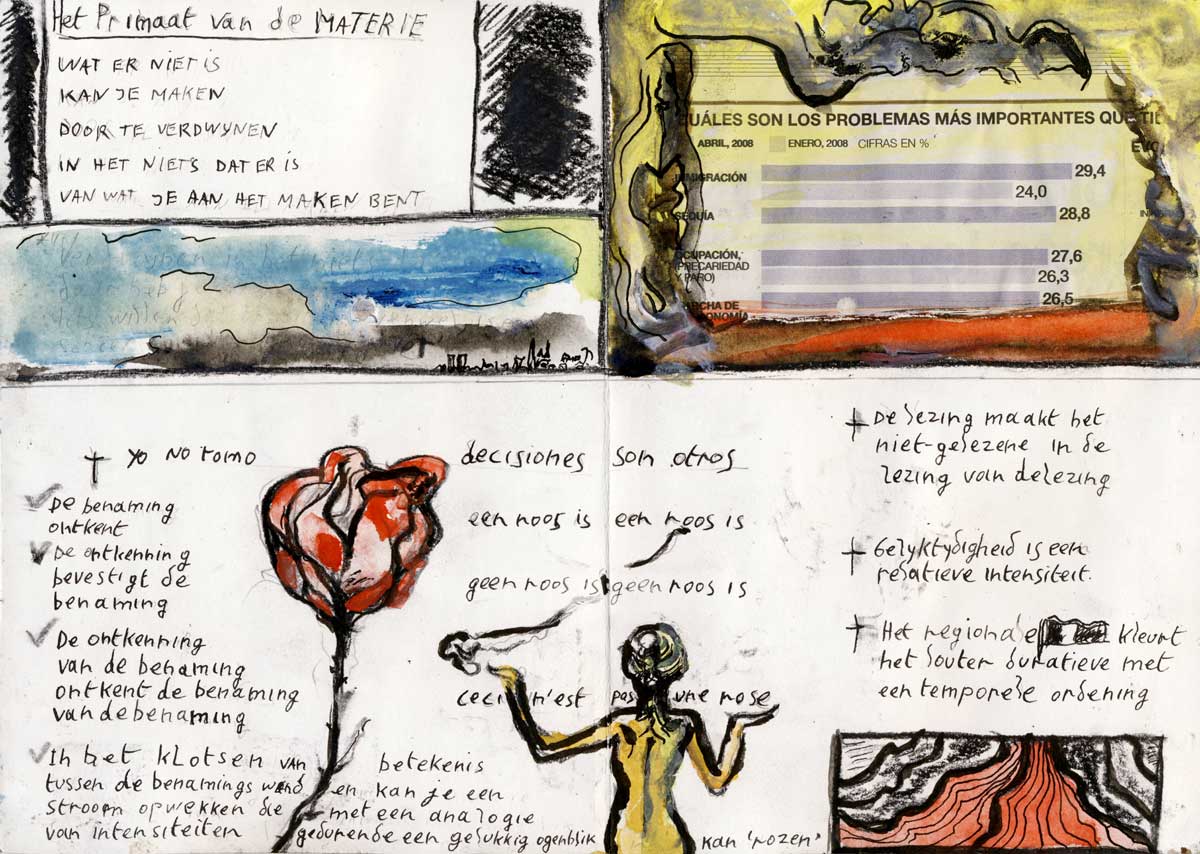 Het Primaat van de MATERIE
WAT ER NIET IS
KAN JE MAKEN
DOOR TE VERDWYNEN
IN HET NIETS DAT ER IS
VAN WAT JE AAN HET MAKEN BENT
CUÁLES SON LOS PROBLEMAS MÁS IMPORTANTES QUE TIE
ABRIL, 2008 ENERO, 2008 CIFRAS EN %
EVO
INMIGRACIÓN 29,4
24,0
SEQUÍA 28,8
OCUPACIÓN, 27,6
(PRECARIEDAD
Y PARO) 26,3
MARCHA DE 26,5
ECONOMÍA
† YO NO TOMO decisiones son otros
De benaming
ontkent
De ontkenning
bevestigt de
benaming
De ontkenning
van de benaming
ontkent de benaming
van de benaming
In het klotsen van betekenis
tussen de benamings wand en kan je een
stroom opwekken die met een analogie
van intensiteiten gedurende een gelukkig ogenblik kan 'rozen'
een roos is een roos is
geen roos is geen roos is
ceci n'est pas une rose
† De lezing maakt het
niet-gelezene in de
lezing van de lezing
† Gelyktydigheid is een
relatieve intensiteit.
† Het regionale kleurt
het louter duratieve met
een temporele ordening